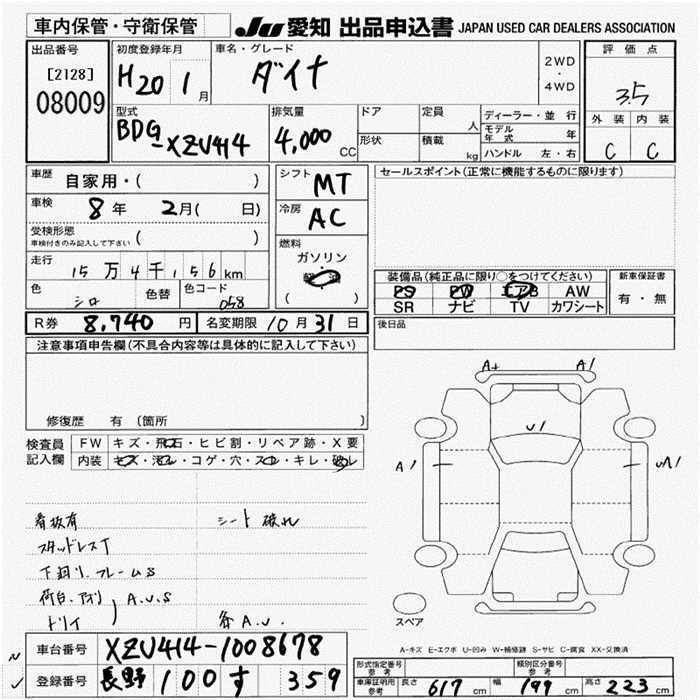 車内保管・守衛保管
JU 愛知 出品申込書 JAPAN USED CAR DEALERS ASSOCIATION
出品番号
[2128]
08009
初度登録年月
H20 1月
車名・グレード
ダイナ
2WD
・
4WD
評価点
3.5
外装 内装
C C
型式
BDG-XZU414
排気量
4,000 CC
ドア
形状
定員
人
積載
kg
ディーラー・並行
モデル年式 年
ハンドル 左・右
車歴
自家用・( )
車検
8年 2月( 日)
受検形態
車検付きのみ記入して下さい ( )
走行
15万4千156km
色
シロ
色替
色コード
058
シフト
MT
冷房
AC
燃料
ガソリン
軽油
( )
セールスポイント(正常に機能するものに限ります)
装備品(純正品に限り○をつけてください)
PS PW エアB AW
SR ナビ TV カワシート
新車保証書
有・無
後日品
R券 8,740円 名変期限 10月31日
注意事項申告欄(不具合内容等は具体的に記入して下さい)
修復歴 有 (箇所 )
検査員記入欄
FW キズ・飛石・ヒビ割・リペア跡・X要
内装 キズ・汚レ・コゲ・穴・スレ・キレ・破レ
看板有
シート破れ
スタッドレスT
下廻リ.フレームS
荷台.アオリ
トリイ
A.U.S
各A.U.
A1
U1
A1
UA1
スペア
A-キズ E-エクボ U-凹み W-補修跡 S-サビ C-腐食 XX-交換済
車台番号 XZU414-1008678
登録番号 長野 100す 359
型式指定番号
参考
類別区分番号
参考
車庫証明用
参考
長さ 617cm 幅 199cm 高さ 223cm